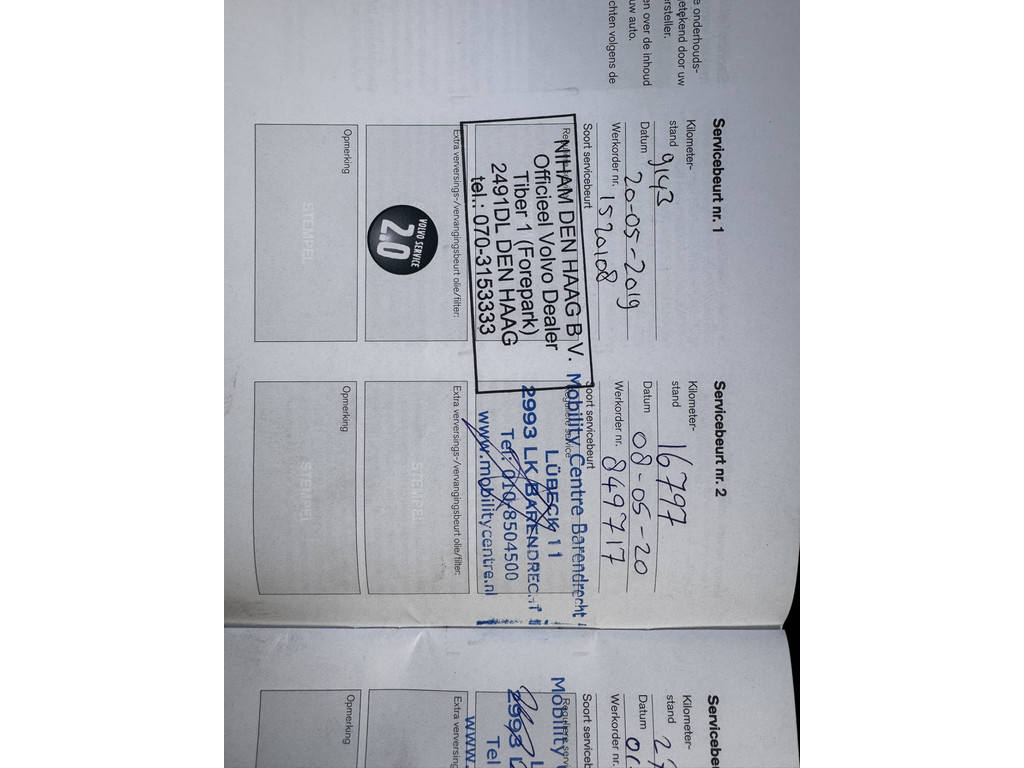 e onderhouds-
etekend door uw
ersteller.
en over de inhoud
uw auto.
chten volgens de
Servicebeurt nr. 1
Kilometer-
stand 9143
Datum 20-05-2019
Werkorder nr. 152108
Soort servicebeurt
NIHAM DEN HAAG B.V.
Officieel Volvo Dealer
Tiber 1 (Forepark)
2491DL DEN HAAG
tel.: 070-3153333
Extra verversings-/vervangingsbeurt olie/filter:
VOLVO SERVICE
2.0
Opmerking
STEMPEL
Servicebeurt nr. 2
Kilometer-
stand 16797
Datum 08-05-20
Werkorder nr. 849717
Soort servicebeurt
Reguliere service
Mobility Centre Barendrecht
LÜBECK 11
2993 LK BARENDRECHT
Tel: 010-8504500
www.mobilitycentre.nl
Extra verversings-/vervangingsbeurt olie/filter:
STEMPEL
Opmerking
STEMPEL
Servicebeu
Kilometer-
stand 27
Datum 0
Werkorder nr.
Soort servicebeurt
Reguliere serv
Mobility
L
2993 L
Tel
www.
Extra verversing
Opmerking